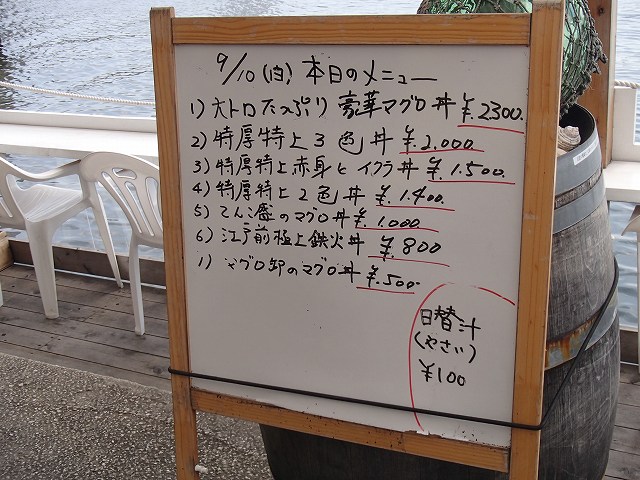 9/10(日)本日のメニュー
1)大トロたっぷり 豪華マグロ丼 ¥2300.
2)特厚特上3色丼 ¥2,000
3)特厚特上赤身とイクラ丼 ¥1.500.
4)特厚特上2色丼 ¥1.400.
5)てんこ盛のマグロ丼 ¥1.000
6)江戸前極上鉄火丼 ¥800
1)マグロ卸のマグロ丼 ¥.500-
日替汁
(やさい)
¥100